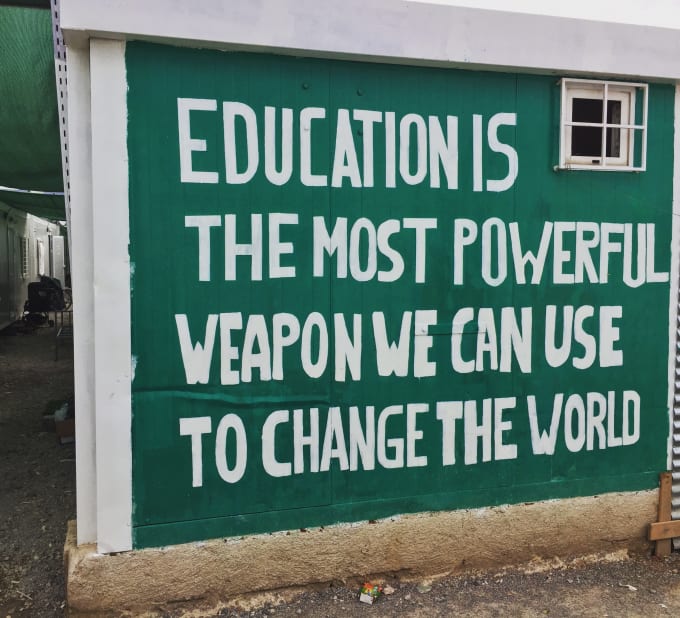 EDUCATION IS
THE MOST POWERFUL
WEAPON WE CAN USE
TO CHANGE THE WORLD